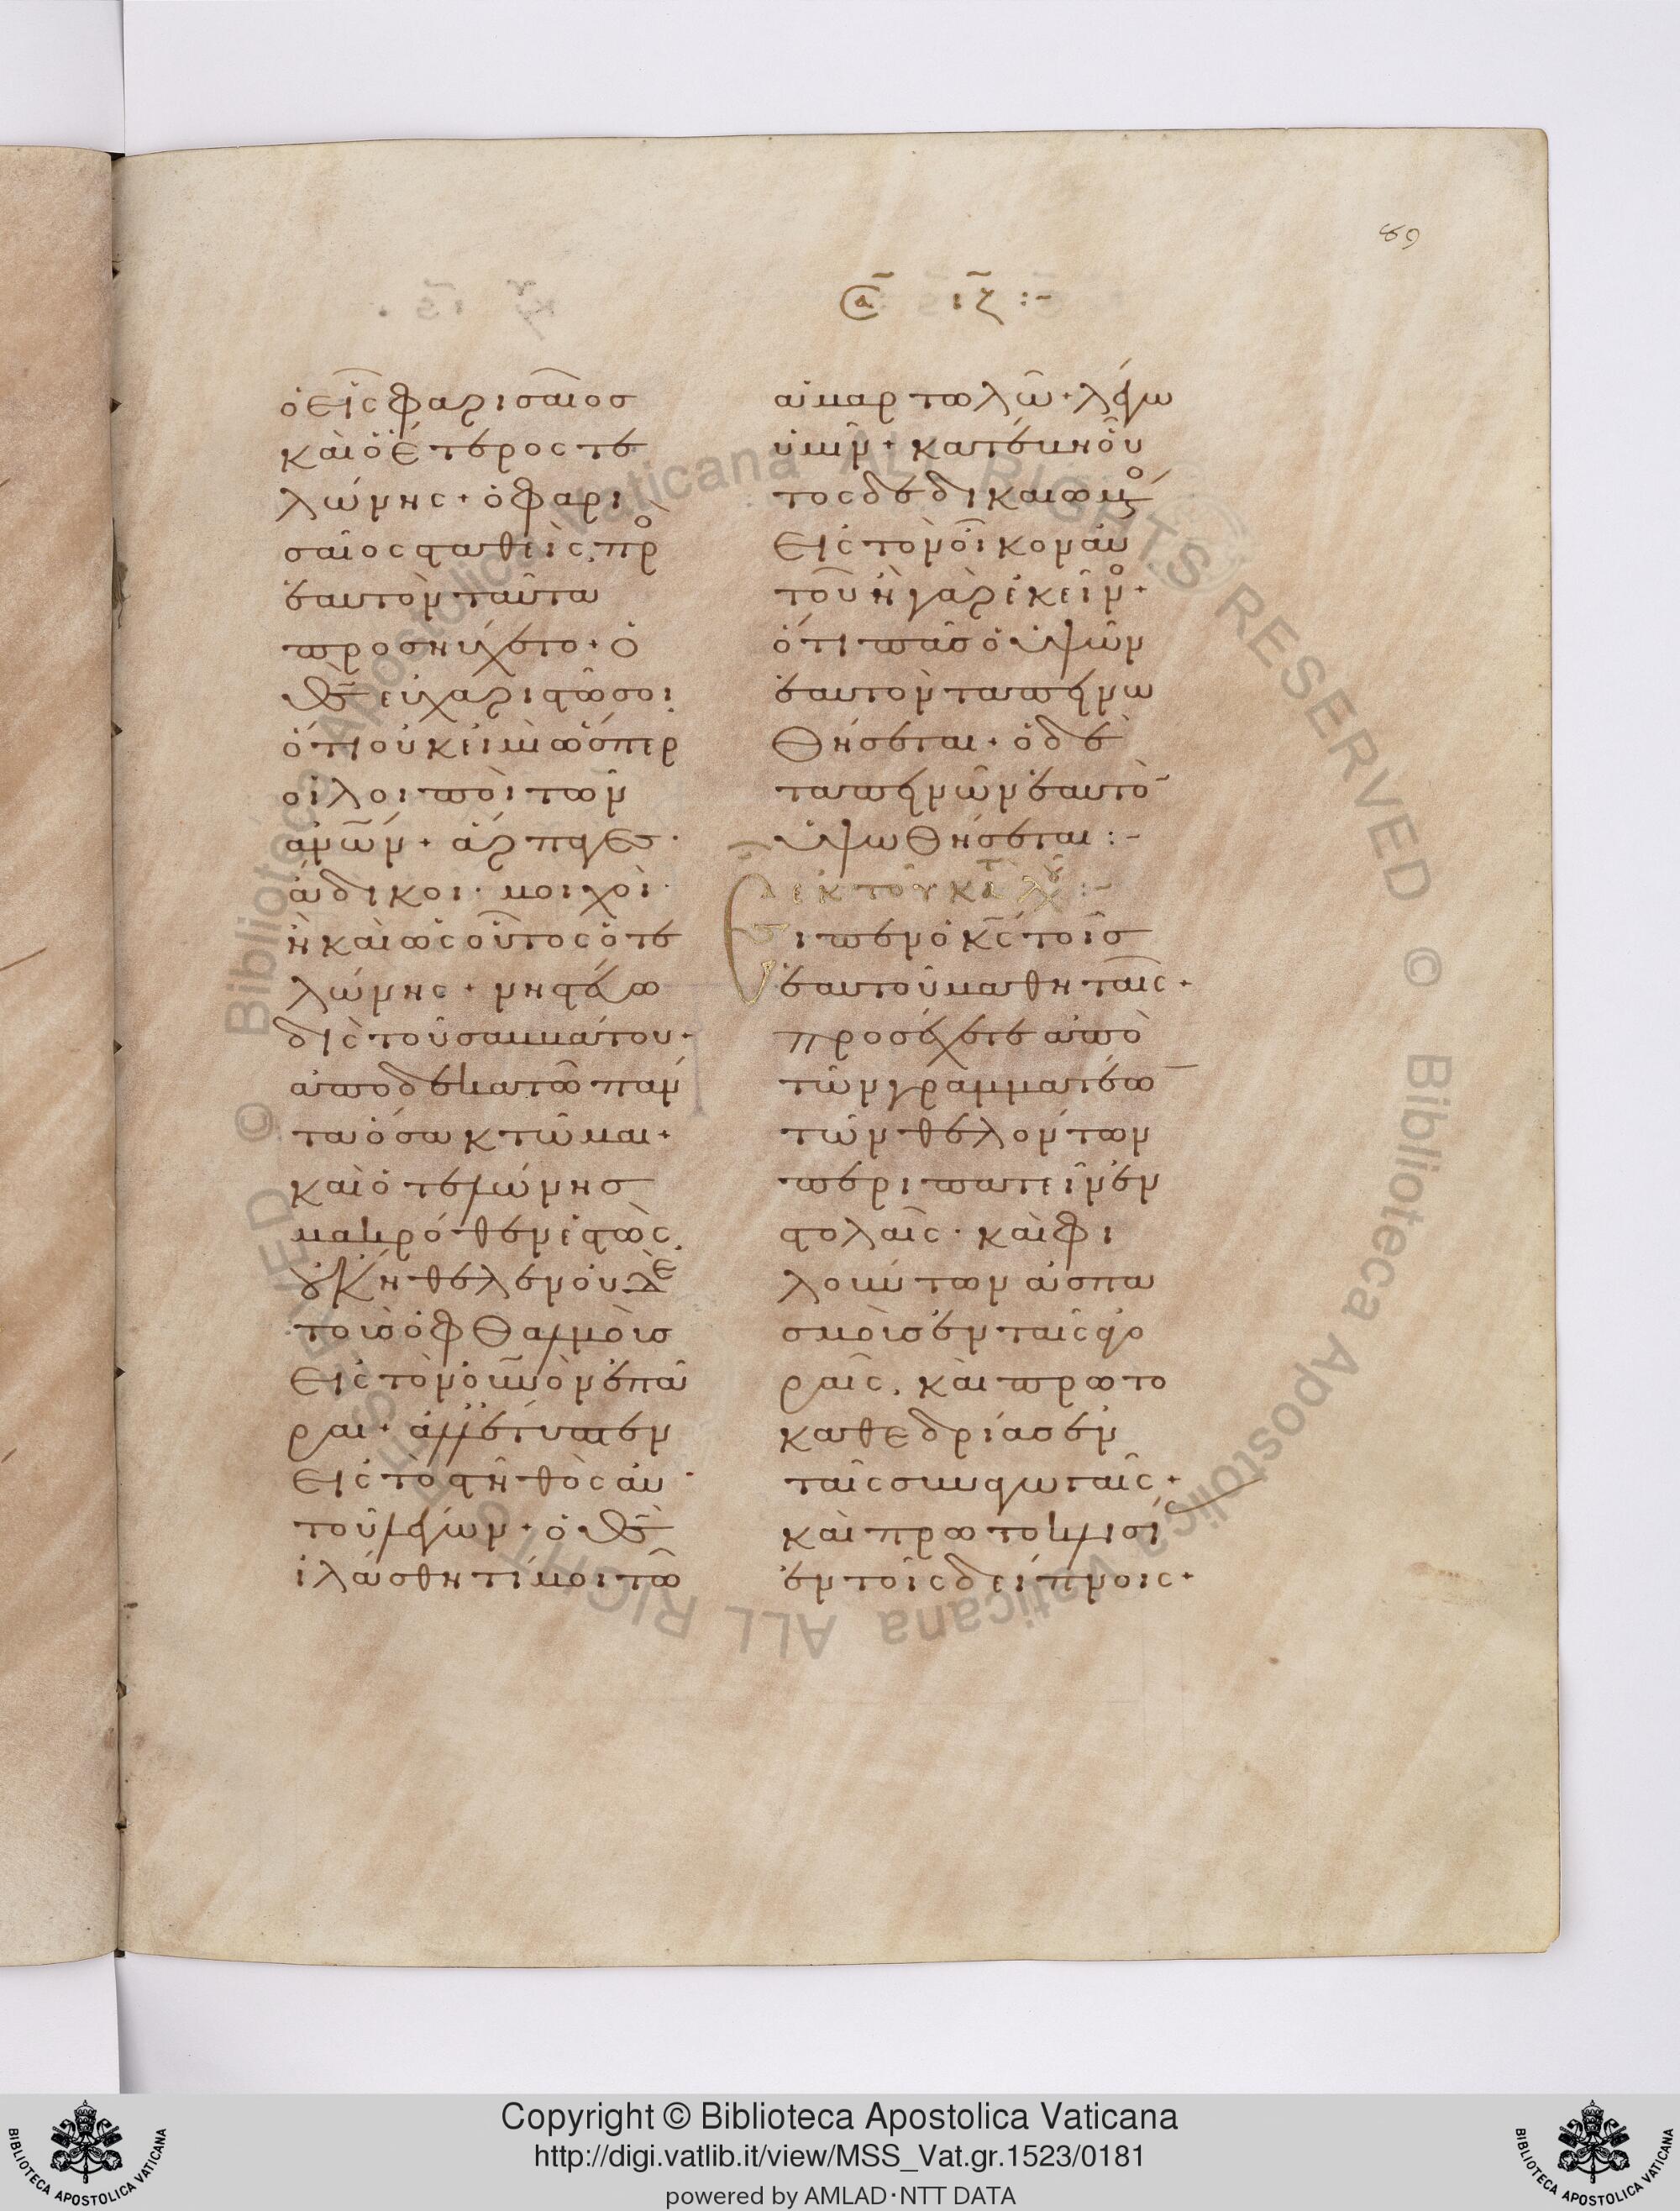 89
σα ιζ :-
ὁ εἷς φαρισαῖος
καὶ ὁ ἕτερος τε
λώνης + ὁ φαρι
σαῖος σταθεὶς πρὸ
ἑαυτὸν ταῦτα
προσηύχετο + ὁ
θς εὐχαριστῶ σοι
ὅτι οὐκ εἰμὶ ὥσπερ
οἱ λοιποὶ τῶν
ἀνων + ἅρπαγες ·
ἄδικοι · μοιχοὶ ·
ἢ καὶ ὡς οὗτος ὁ τε
λώνης + νηστεύω
δὶς τοῦ σαββάτου +
ἀποδεκατῶ πάν
τα ὅσα κτῶμαι +
καὶ ὁ τελώνης
μακρόθεν ἑστὼς
οὐκ ἤθελεν οὐδὲ
τοῖς ὀφθαλμοῖς
εἰς τὸν οὐνον ἐπᾶ
ραι + ἀλλ' ἔτυπτεν
εἰς τὸ στῆθος αὑ
τοῦ λέγων + ὁ θς
ἱλάσθητί μοι τῶ
ἁμαρτωλῶ + λέγω
ὑμῖν + κατέβη οὗ
τος δεδικαιωμένο
εἰς τὸν οἶκον αὑ
τοῦ ἢ γὰρ ἐκεῖνο +
ὅτι πᾶς ὁ ὑψῶν
ἑαυτὸν ταπεινω
θήσεται + ὁ δὲ
ταπεινῶν ἑαυτὸ
ὑψωθήσεται :-
ἐκ τοῦ κτ λου :-
Εἶπεν ὁ κς τοῖς
ἑαυτοῦ μαθηταῖς +
προσέχετε ἀπὸ
τῶν γραμματέω
τῶν θελόντων
περιπατεῖν ἐν
στολαῖς · καὶ φι
λούντων ἀσπα
σμοὺς ἐν ταῖς ἀγο
ραῖς · καὶ πρωτο
καθεδρίας ἐν
ταῖς συναγωγαῖς +
καὶ πρωτοκλισί
ἐν τοῖς δείπνοις +
© Biblioteca Apostolica Vaticana ALL RIGHTS RESERVED © Biblioteca Apostolica Vaticana ALL RIGHTS RESERVED
Copyright © Biblioteca Apostolica Vaticana
http://digi.vatlib.it/view/MSS_Vat.gr.1523/0181
powered by AMLAD·NTT DATA
BIBLIOTECA APOSTOLICA VATICANA
BIBLIOTECA APOSTOLICA VATICANA